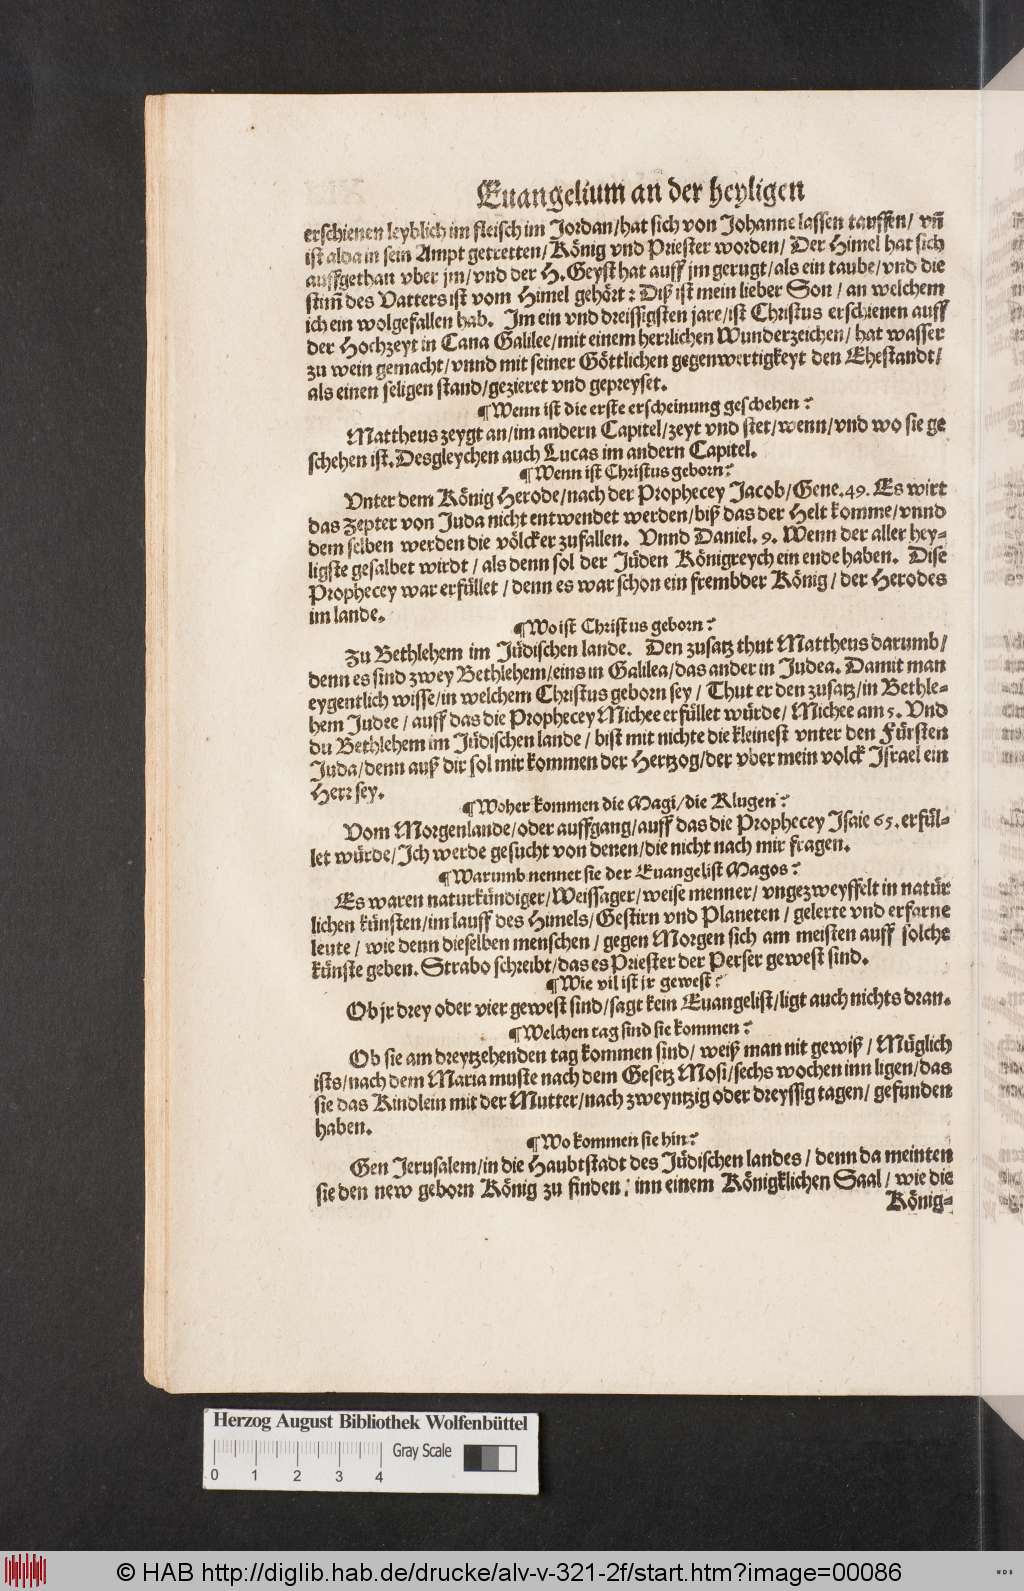 Euangelium an der heyligen
erschienen leyblich im fleisch im Jordan/hat sich von Johanne lassen tauffen/ vñ
ist alda in sein Ampt getretten/König vnd Priester worden/Der Himel hat sich
auffgethan vber jm/vnd der H.Geyst hat auff jm gerugt/als ein taube/vnd die
stim̃ des Vatters ist vom Himel gehört: Diß ist mein lieber Son/an welchem
ich ein wolgefallen hab. Im ein vnd dreissigsten jare/ist Christus erschienen auff
der Hochzeyt in Cana Galilee/mit einem herrlichen Wunderzeichen/hat wasser
zu wein gemacht/vnnd mit seiner Göttlichen gegenwertigkeyt den Ehestandt/
als einen seligen stand/gezieret vnd gepreyset.
¶Wenn ist die erste erscheinung geschehen?
Mattheus zeygt an/im andern Capitel/zeyt vnd stet/wenn/vnd wo sie ge
schehen ist.Desgleychen auch Lucas im andern Capitel.
¶Wenn ist Christus geborn?
Vnter dem König Herode/nach der Prophecey Jacob/Gene.49. Es wirt
das Zepter von Juda nicht entwendet werden/biß das der Helt komme/vnnd
dem selben werden die völcker zufallen. Vnnd Daniel.9. Wenn der aller hey-
ligste gesalbet wirdt/als denn sol der Jüden Königreych ein ende haben. Dise
Prophecey war erfüllet/denn es war schon ein frembder König/der Herodes
im lande.
¶Wo ist Christus geborn?
Zu Bethlehem im Jüdischen lande. Den zusatz thut Mattheus darumb/
denn es sind zwey Bethlehem/eins in Galilea/das ander in Judea.Damit man
eygentlich wisse/in welchem Christus geborn sey/Thut er den zusatz/in Bethle-
hem Judee/auff das die Prophecey Michee erfüllet würde/Michee am 5. Vnd
du Bethlehem im Jüdischen lande/bist mit nichte die kleinest vnter den Fürsten
Juda/denn auß dir sol mir kommen der Hertzog/der vber mein volck Israel ein
Herr sey.
¶Woher kommen die Magi/die Klugen?
Vom Morgenlande/oder auffgang/auff das die Prophecey Isaie 65.erfül-
let würde/Ich werde gesucht von denen/die nicht nach mir fragen.
¶Warumb nennet sie der Euangelist Magos?
Es waren naturkündiger/Weissager/weise menner/vngezweyffelt in natür
lichen künsten/im lauff des Himels/Gestirn vnd Planeten/gelerte vnd erfarne
leute/wie denn dieselben menschen/gegen Morgen sich am meisten auff solche
künste geben.Strabo schreibt/das es Priester der Perser gewest sind.
¶Wie vil ist jr gewest?
Ob jr drey oder vier gewest sind/sagt kein Euangelist/ligt auch nichts dran.
¶Welchen tag sind sie kommen?
Ob sie am dreytzehenden tag kommen sind/weiß man nit gewiß/Müglich
ists/nach dem Maria muste nach dem Gesetz Mosi/sechs wochen inn ligen/das
sie das Kindlein mit der Mutter/nach zweyntzig oder dreyssig tagen/gefunden
haben.
¶Wo kommen sie hin?
Gen Jerusalem/in die Haubtstadt des Jüdischen landes/denn da meinten
sie den new geborn König zu finden: inn einem Königklichen Saal/wie die
König-
Herzog August Bibliothek Wolfenbüttel
Gray Scale
0 1 2 3 4
© HAB http://diglib.hab.de/drucke/alv-v-321-2f/start.htm?image=00086